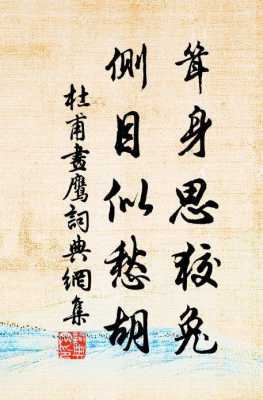 耸身思狡兔
侧目似愁胡
杜甫畫鹰詞典網集